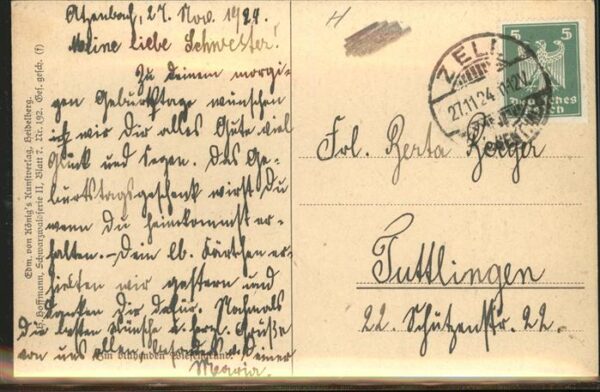 Atzenbach, 27. Nov. 1924.
Meine liebe Schwester!
Zu deinem morgi-
gen Geburtstage wünschen
ich wir dir alles Gute viel
Glück und Segen. Das Ge-
burtstagsgeschenk wirst du
wenn du heimkommst er-
halten. – Dein lb. Kärtchen er-
hielten wir gestern und
danken dir dafür. Nochmals
die besten Wünsche u. herz. Grüße
von uns allen besonders v. deiner
Maria.
Im blühenden Wiesengrund.
Edm. von König's Kunstverlag, Heidelberg.
H. Hoffmann, Schwarzwaldserie II, Blatt 7. Nr. 192. Ges. gesch. (f)
H
ZELL
27.11.24 11-12V.
5 5
Deutsches
Frl. Berta
Tuttlingen
22. Schützenstr. 22.